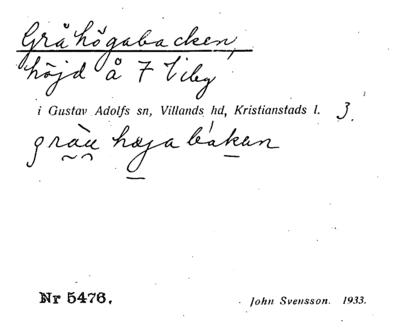 Gråhögabacken,
höjd å 7 Viby
i Gustav Adolfs sn, Villands hd, Kristianstads l. 3.
Nr 5476. John Svensson. 1933.